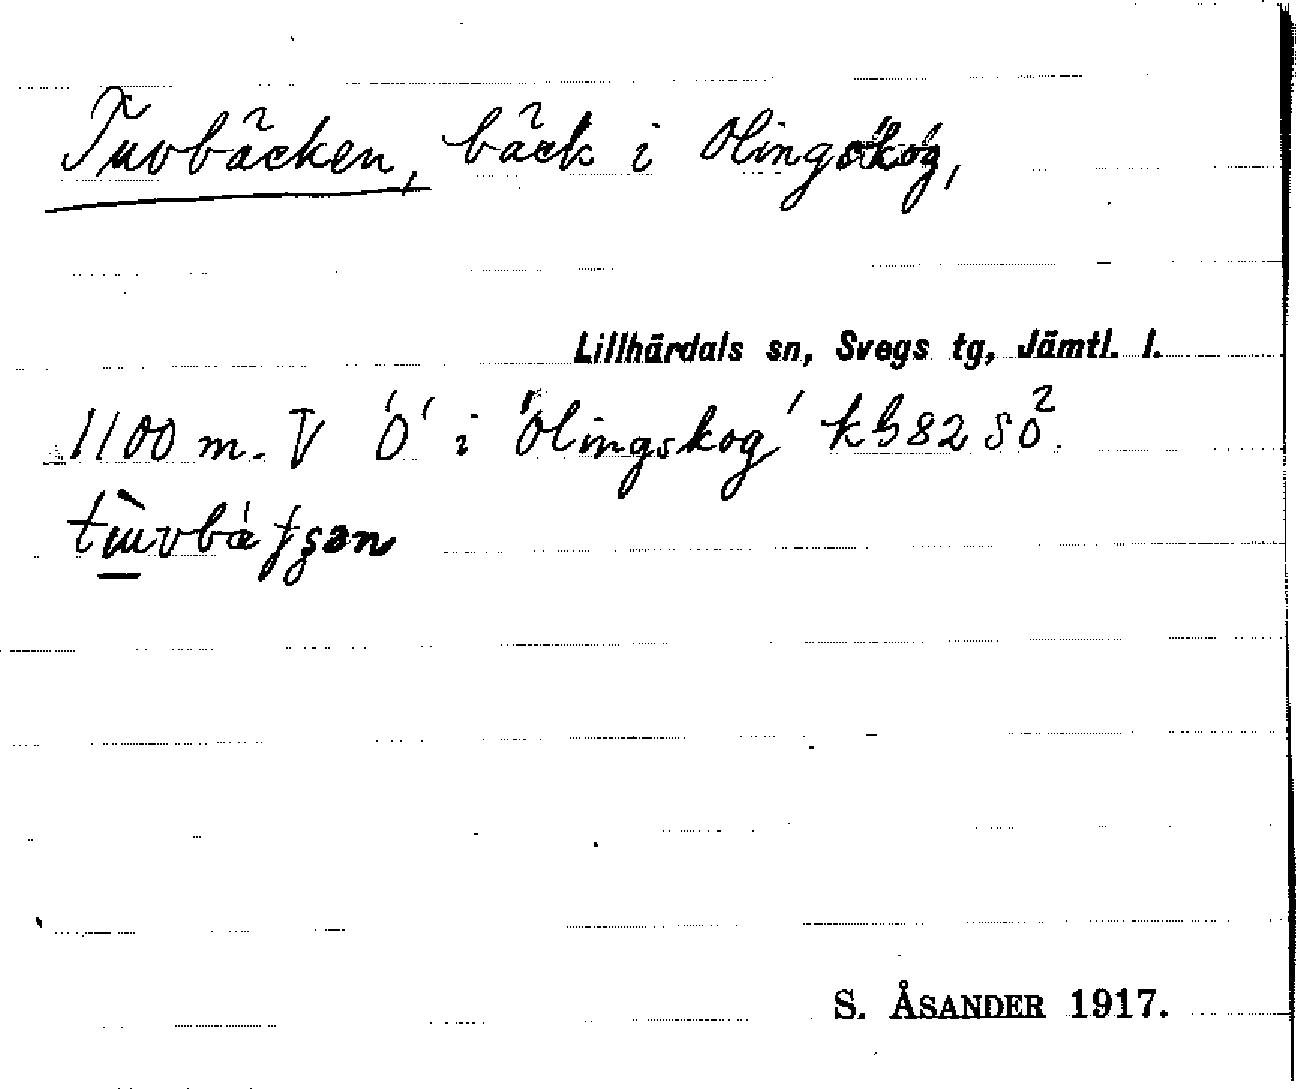 Tuvbäcken, bäck i Olingskog,
Lillhärdals sn, Svegs tg, Jämtl. l.
1100 m. V 'O' i 'Olingskog' kb 82 SÖ.
S. ÅSANDER 1917.